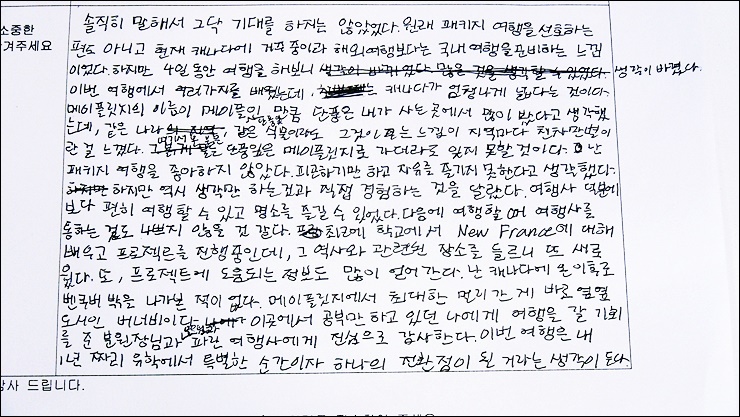 소중한
겨주세요
솔직히 말해서 그닥 기대를 하지는 않았었다. 원래 패키지 여행을 선호하는
편도 아니고 현재 캐나다에 거주중이라 해외여행보다는 국내 여행을 준비하는 느낌
이었다. 하지만 4일 동안 여행을 해보니 생각이 바뀌었다. 많은 것을 생각할 수 있었다. 생각이 바꼈다.
이번 여행에서 여러가지를 배웠는데, 캐나다가 엄청나게 넓다는 것이다.
메이플릿지의 이름이 메이플인 만큼 단풍은 내가 사는곳에서 많이 봤다고 생각했
는데, 같은 나라 같은 식물이라도 그것이 주는 느낌이 지역마다 천차만별이
란 걸 느꼈다. 여기서 본 붉은 단풍잎은 메이플릿지로 가더라도 잊지 못할 것이다. 난
패키지 여행을 좋아하지 않았다. 피곤하기만 하고 자유를 즐기지 못한다고 생각했다.
하지만 하지만 역시 생각만 하는것과 직접 경험하는 것은 달랐다. 여행사 덕분에
보다 편히 여행할 수 있고 명소를 즐길 수 있었다. 다음에 여행할 때 여행사를
통하는 것도 나쁘지 않을 것 같다. 최근에 학교에서 New France에 대해
배우고 프로젝트를 진행중인데, 그 역사와 관련된 장소를 들르니 또 새로
웠다. 또, 프로젝트에 도움되는 정보도 많이 얻어간다. 난 캐나다에 온 이후로
벤쿠버 밖을 나가본 적이 없다. 메이플릿지에서 최대한 멀리간 게 바로 옆옆
도시인 버너비이다. 이곳에서 공부만 하고 있던 나에게 여행을 갈 기회
를 준 원장님과 파란 여행사에게 진심으로 감사한다. 이번 여행은 내
1년 짜리 유학에서 특별한 순간이자 하나의 전환점이 될 거라는 생각이 든다.
감사 드립니다.